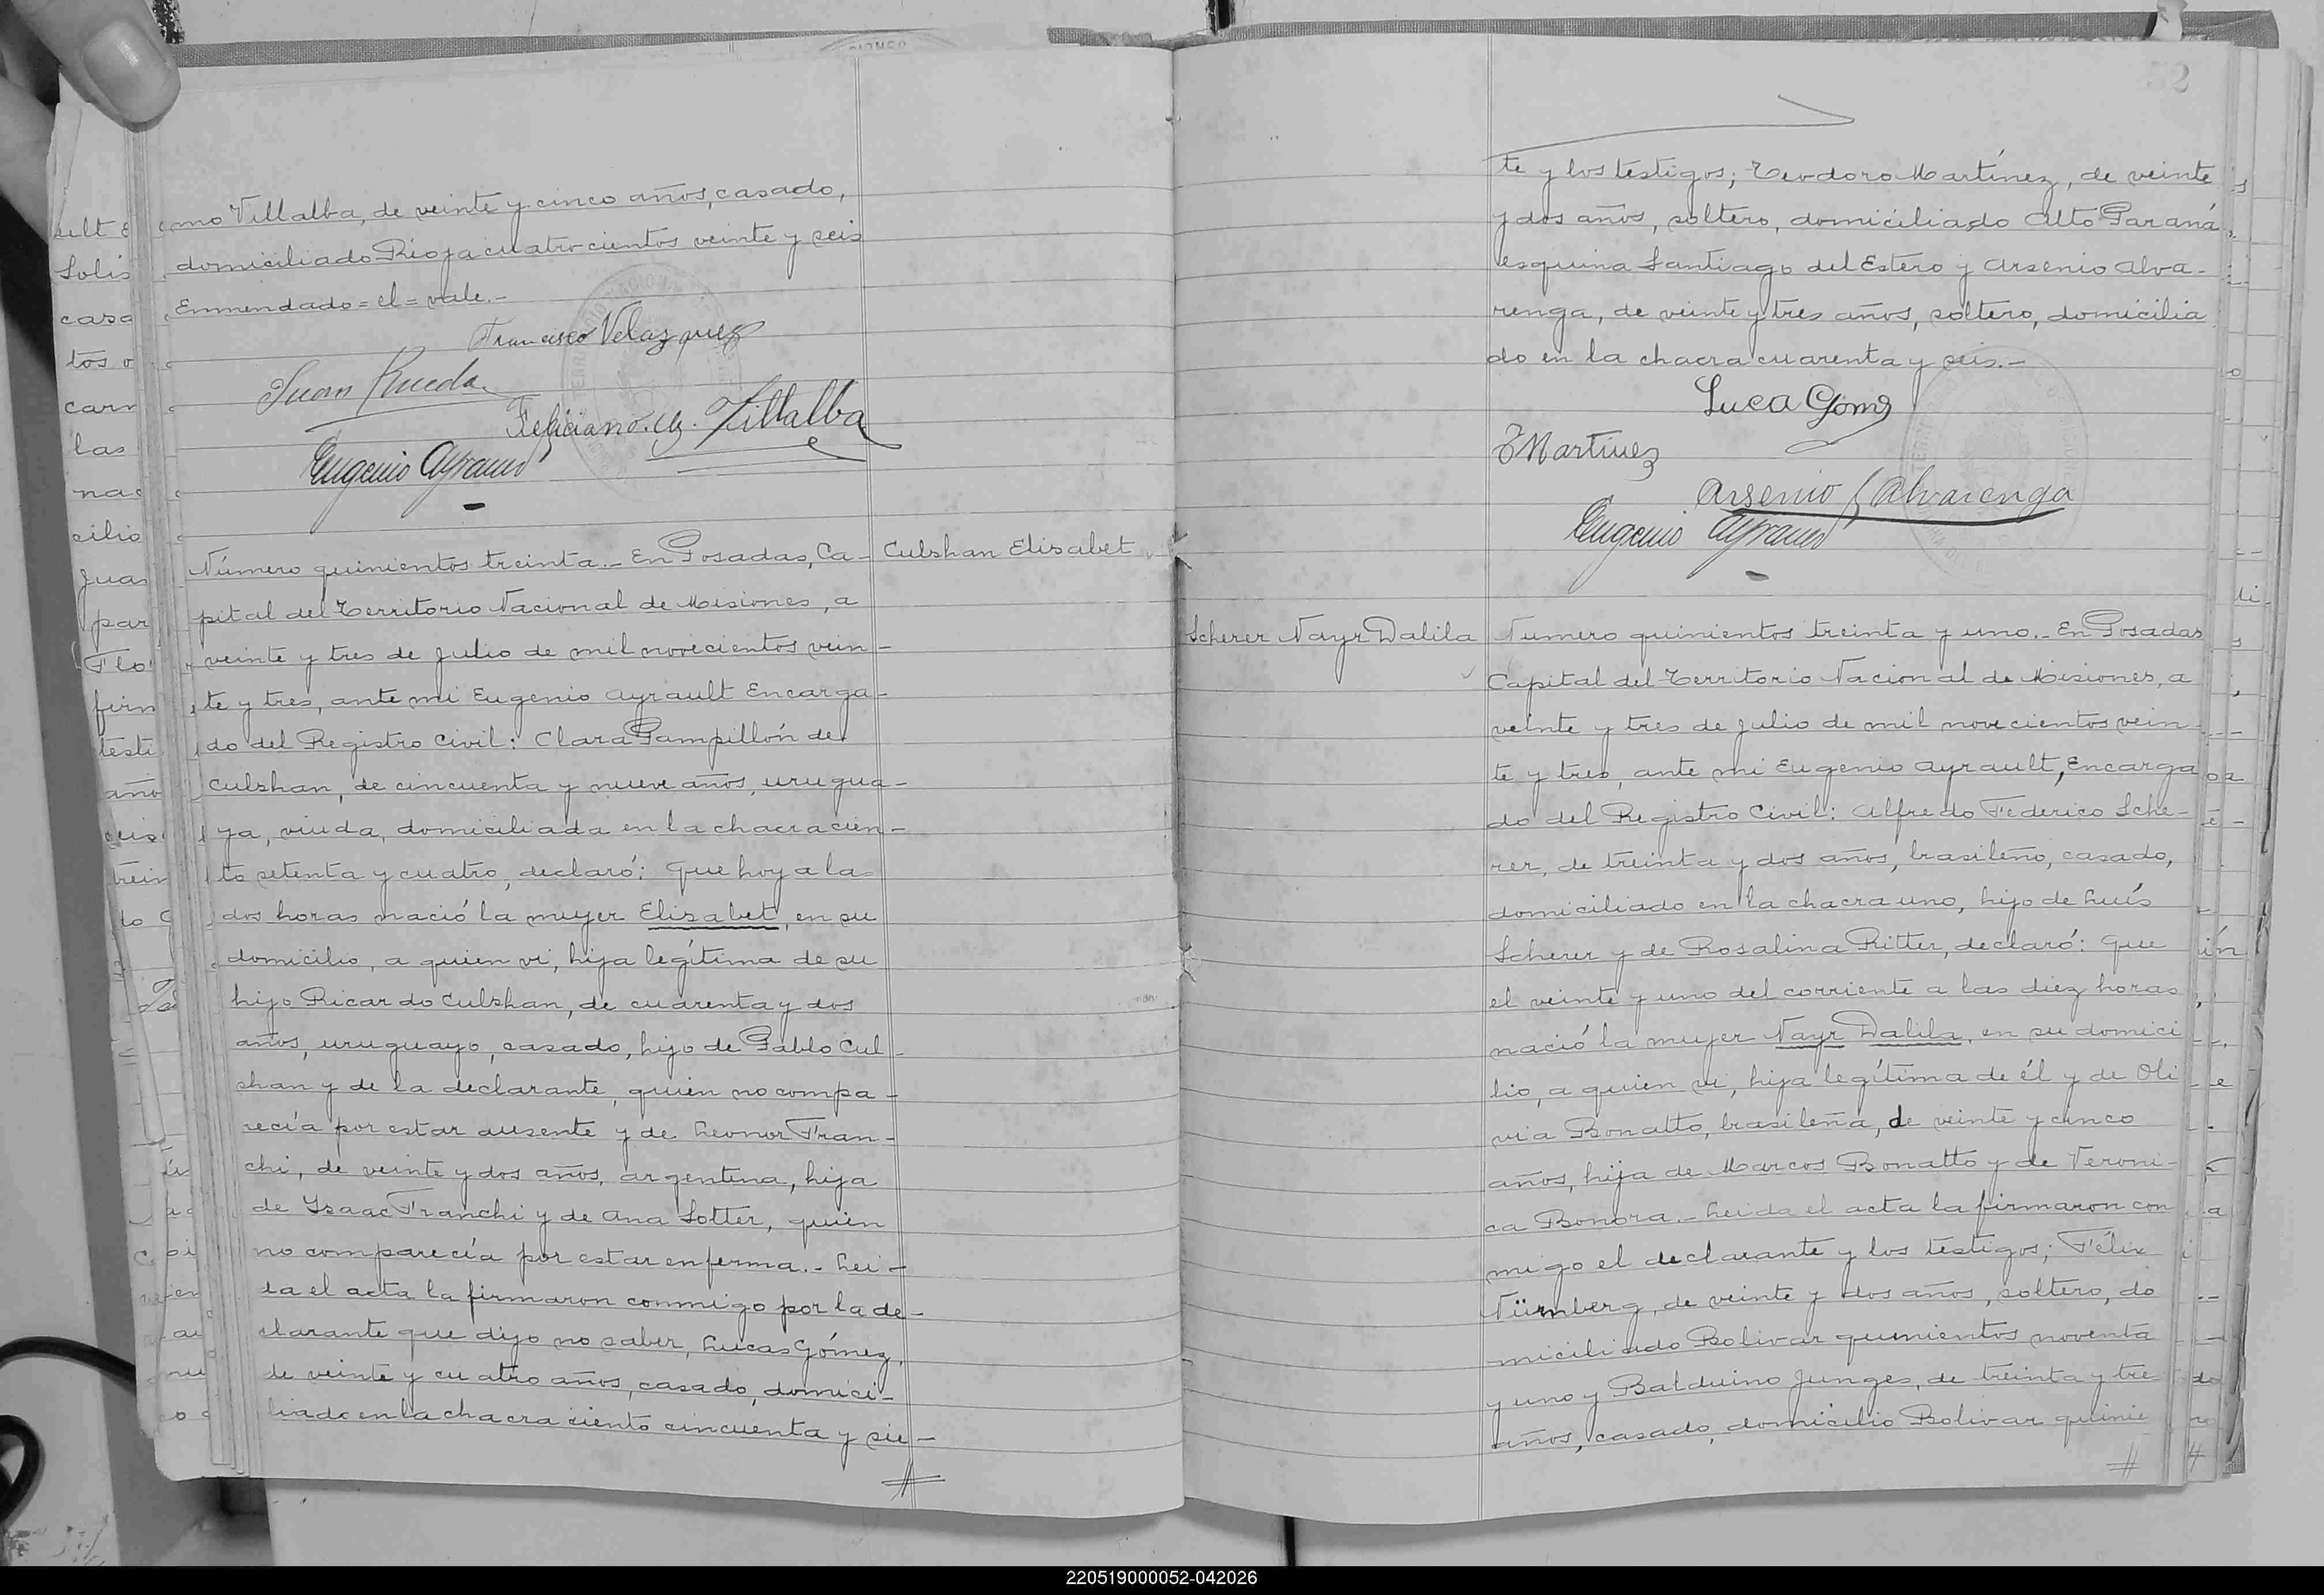 mo Villalba, de veinte y cinco años, casado,
domiciliado Rioja cuatrocientos veinte y seis
Enmendado = el = vale.-
Francisco Velazquez
Juan Rueda
Feliciano. M. Villalba
Eugenio Ayrault
Culshan Elisabet
Número quinientos treinta.- En Posadas, Ca-
pital del Territorio Nacional de Misiones, a
veinte y tres de Julio de mil novecientos vein-
te y tres, ante mi Eugenio Ayrault Encarga-
do del Registro Civil: Clara Pampillón de
Culshan, de cincuenta y nueve años, urugua-
ya, viuda, domiciliada en la chacra cien-
to setenta y cuatro, declaró: Que hoy a las
dos horas nació la mujer Elisabet, en su
domicilio, a quien vi, hija legítima de su
hijo Ricardo Culshan, de cuarenta y dos
años, uruguayo, casado, hijo de Pablo Cul-
shan y de la declarante, quien no compa-
recía por estar ausente y de Leonor Fran-
chi, de veinte y dos años, argentina, hija
de Isaac Franchi y de Ana Sotter, quien
no comparecía por estar enferma.- Lei-
da el acta la firmaron conmigo por la de-
clarante que dijo no saber, Lucas Gómez,
de veinte y cuatro años, casado, domici-
liado en la chacra ciento cincuenta y sie-
te y los testigos; Teodoro Martínez, de veinte
y dos años, soltero, domiciliado Alto Paraná,
esquina Santiago del Estero y Arsenio Alva-
renga, de veinte y tres años, soltero, domicilia
do en la chacra cuarenta y seis.-
Luca Gomz
T Martínez
Arsenio Alvarenga
Eugenio Ayrault
Scherer Nayr Dalila
Numero quinientos treinta y uno.- En Posadas
Capital del Territorio Nacional de Misiones, a
veinte y tres de Julio de mil novecientos vein-
te y tres, ante mi Eugenio Ayrault, Encarga
do del Registro Civil: Alfredo Federico Sche-
rer, de treinta y dos años, brasileño, casado,
domiciliado en la chacra uno, hijo de Luís
Scherer y de Rosalina Ritter, declaró: Que
el veinte y uno del corriente a las diez horas
nació la mujer Nayr Dalila, en su domici
lio, a quien vi, hija legítima de él y de Oli
via Bonatto, brasileña, de veinte y cinco
años, hija de Marcos Bonatto y de Veroni-
ca Bonora.- Leida el acta la firmaron con
migo el declarante y los testigos; Félix
Nürnberg, de veinte y dos años, soltero, do
miciliado Bolivar quinientos noventa
y uno y Balduino Junges, de treinta y tre
años, casado, domicilio Bolivar quinie
220519000052-042026